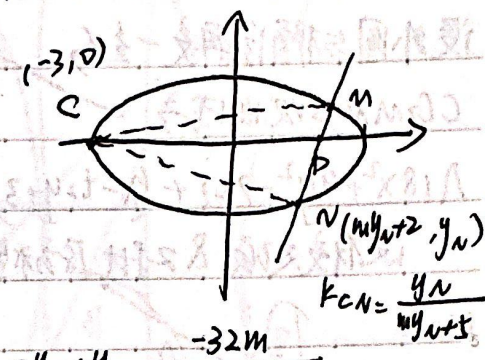 (-3,0)
C
M
D
N(my_N+2, y_N)
k_{CN} = \frac{y_N}{my_N+5}
-32m